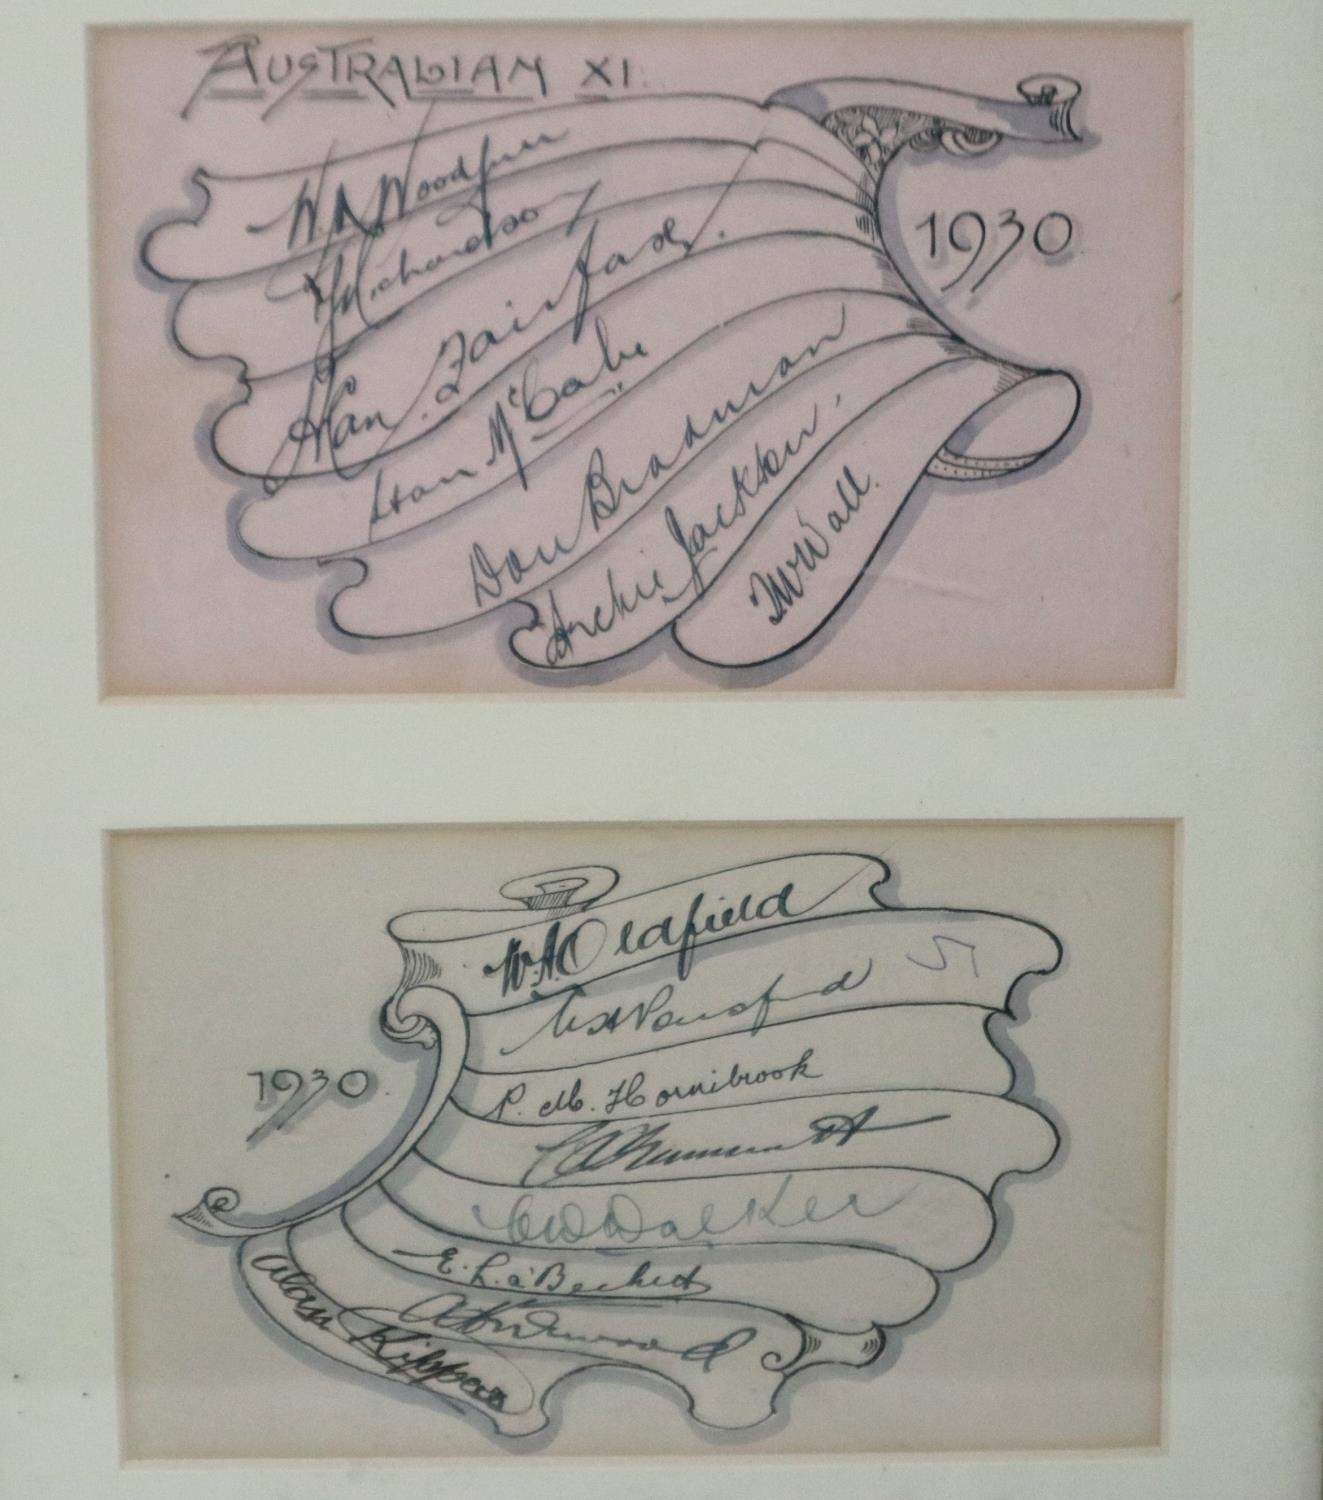 AUSTRALIAN XI.
1930
W. M. Woodfull
V Y Richardson
Alan. Fairfax.
Stan McCabe
Don Bradman
Archie Jackson.
T W Wall.
W. A. Oldfield
W H Ponsford
P. M. Hornibrook
1930
C V Grimmett
C W Walker
E. L. a'Beckett
A Hurwood
Alan Kippax